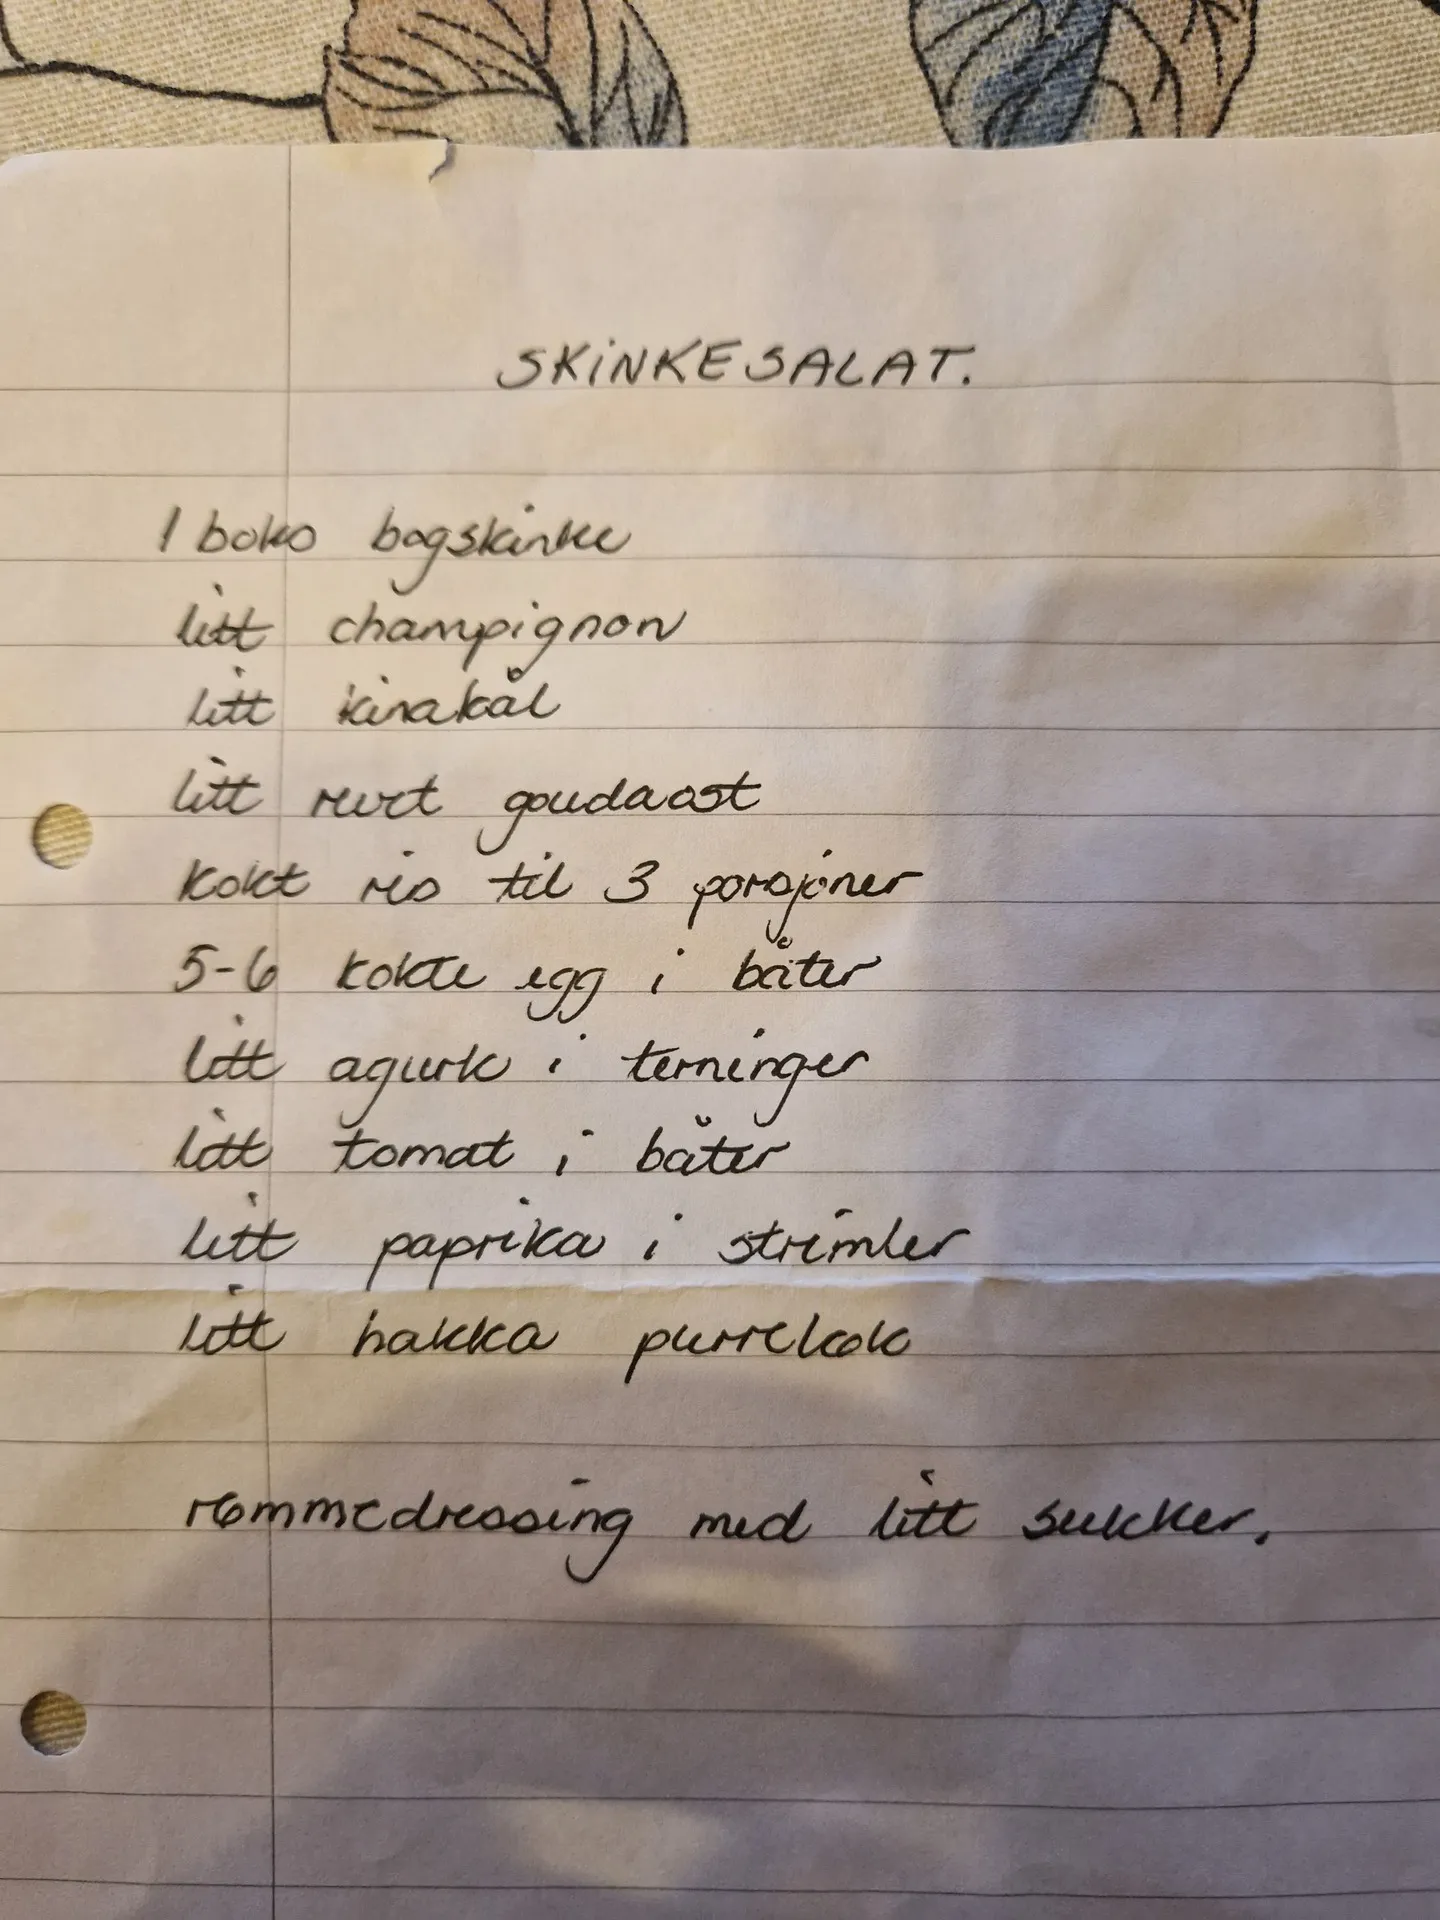 SKINKESALAT.
1 boks bogskinke
litt champignon
litt kinakål
litt revet goudaost
kokt ris til 3 porsjoner
5-6 kokte egg i båter
litt agurk i terninger
litt tomat i båter
litt paprika i strimler
litt hakka purreløk
rømmedressing med litt sukker.